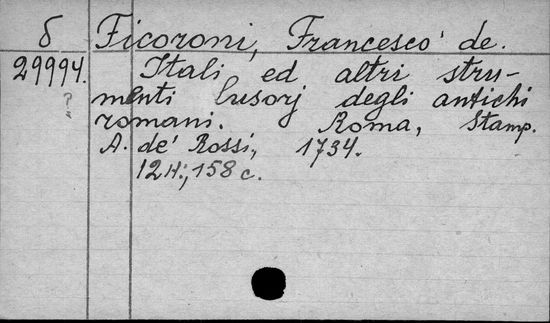 δ Ficoroni, Francesco de.
29994. Itali ed altri stru-
? menti lusorj degli antichi
romani. Roma, Stamp.
A. de' Rossi, 1734.
12 н:, 158 c.